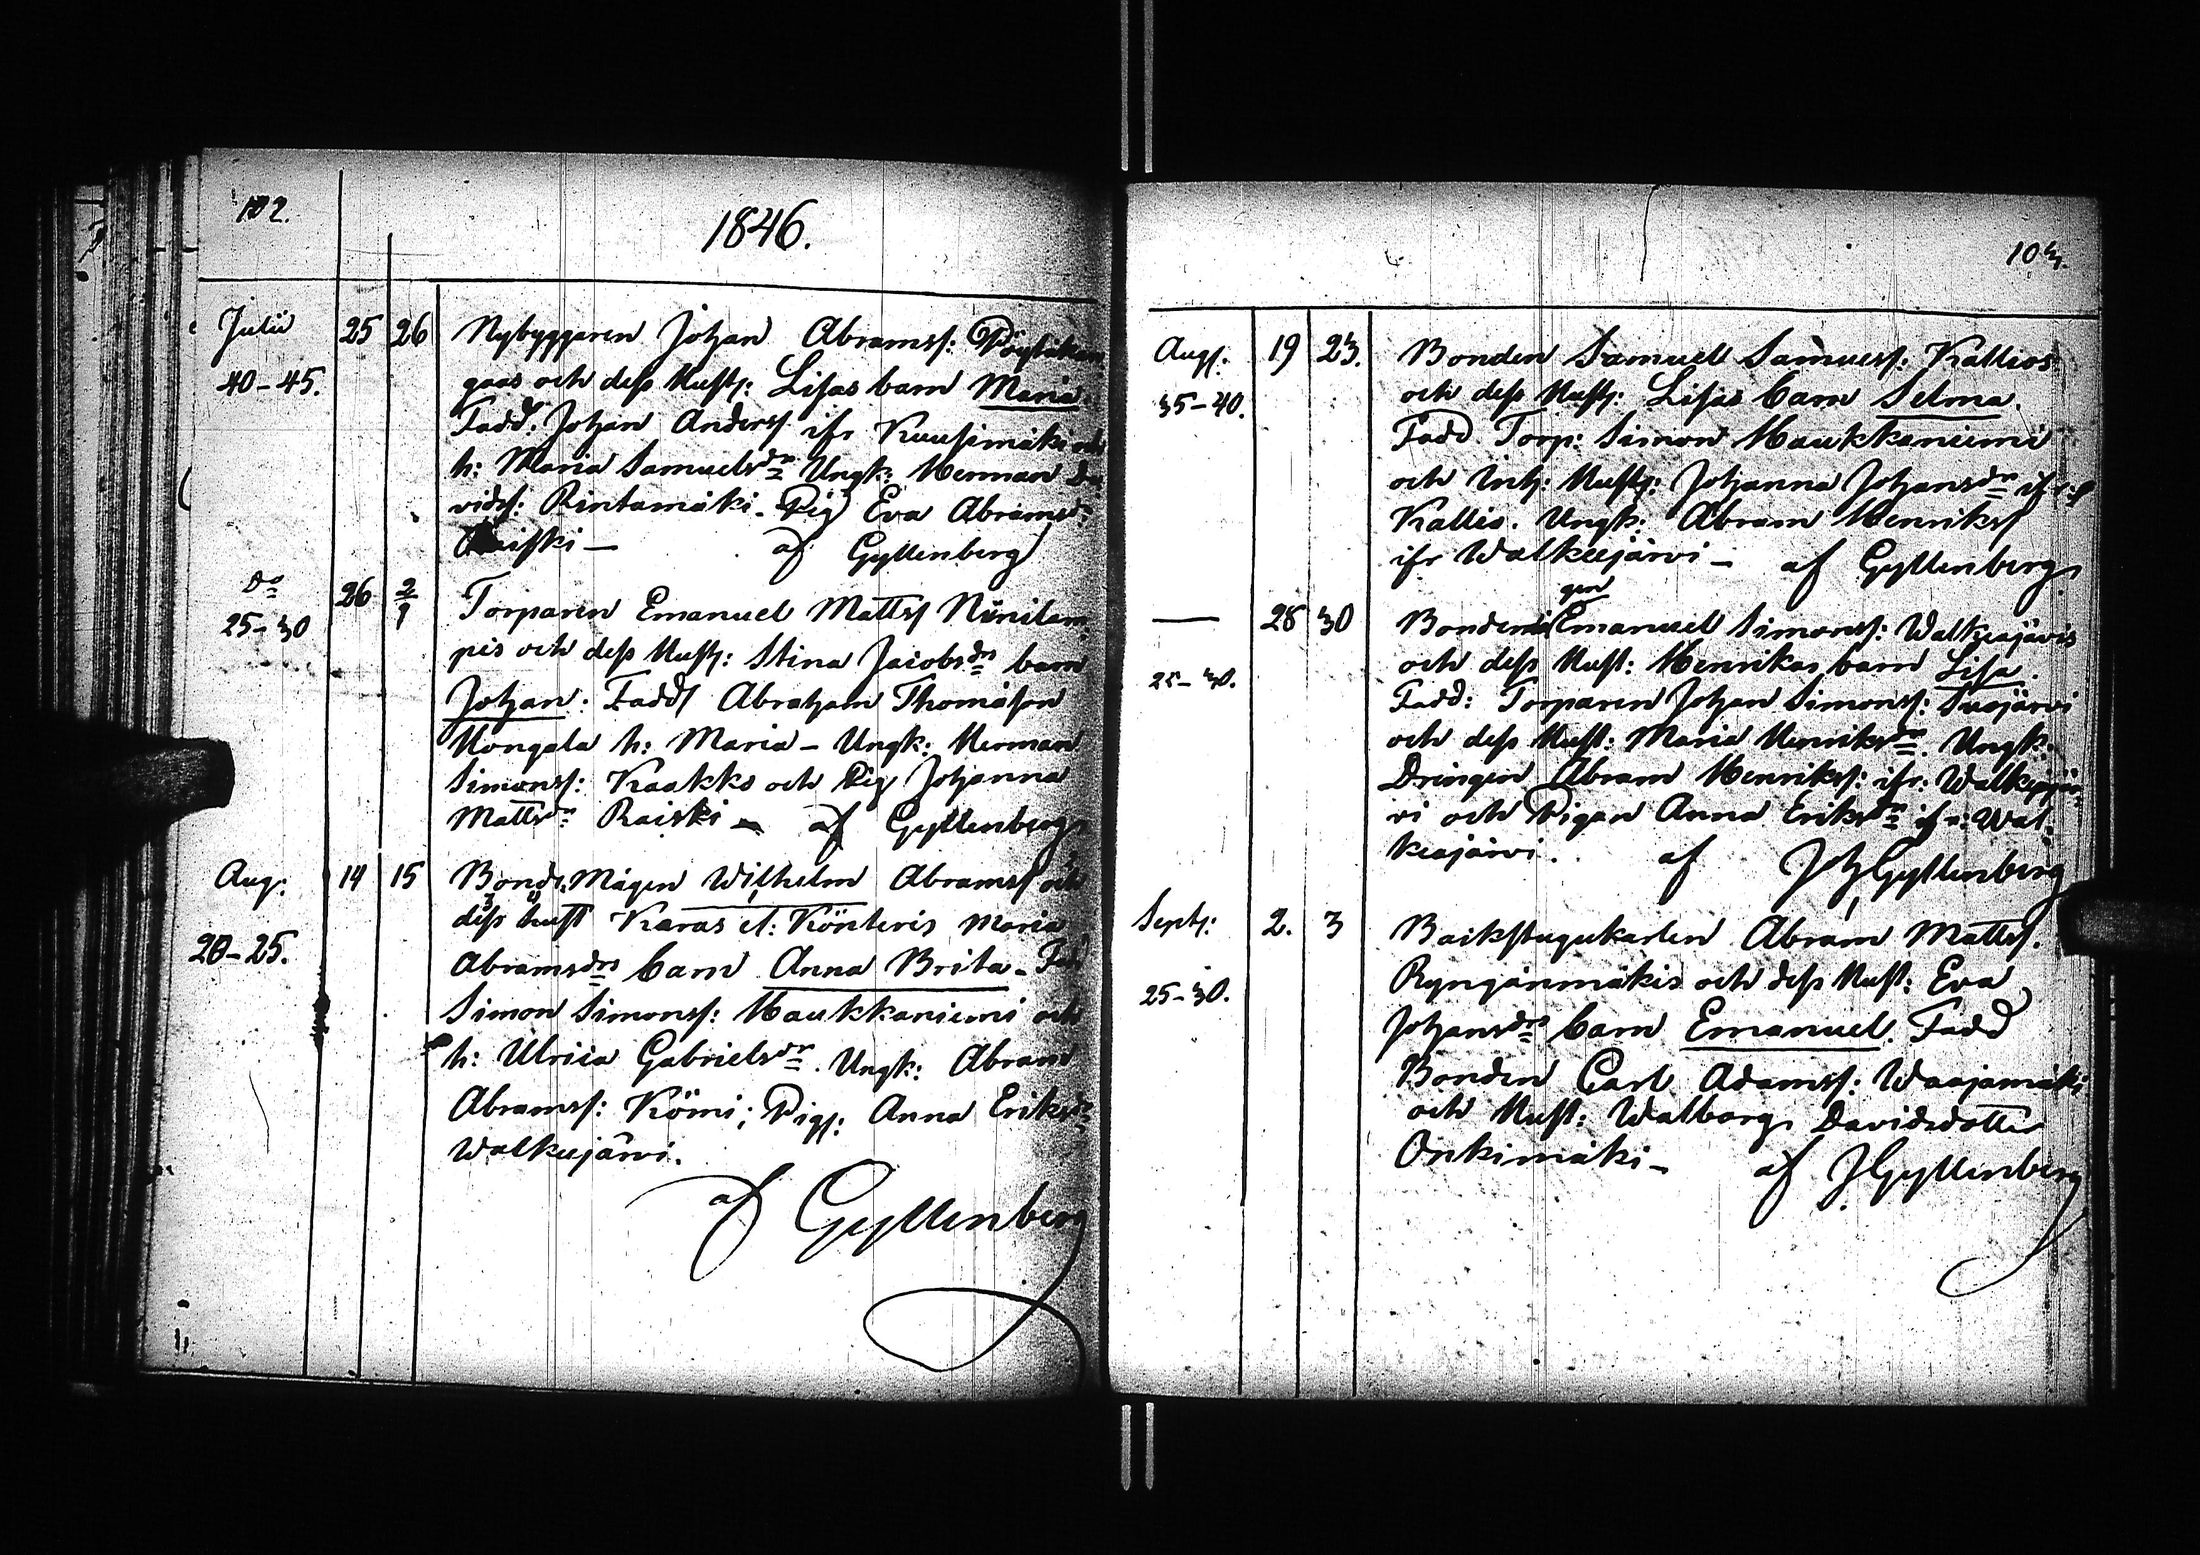 102.
1846.
Julii 25 26 Nybyggaren Johan Abramss:
40-45. gaas och dess Hust: Lisas barn Maria
Fadd: Johan Anderss ifr Kuusimäki
h: Maria Samuelsdr Ungk: Herman Da-
vidss: Rintamäki - Pig Eva Abramsdr
Raiski — af Gyllenberg
Do 26 2/1 Torparen Emanuel Mattss Niinilam-
25-30 pis och dess Hust: Stina Jacobsdrs barn
Johan: Fadd Abraham Thomasson
Hongala h: Maria - Ungk: Herman
Simonss: Kaakko och Pig Johanna
Mattsdr Raiski - af Gyllenberg
Aug: 14 15 Bonde Mågen Wilhelm Abramss och
20-25. dess hust Karas Könteris Maria
Abramsdrs barn Anna Brita - Fadd
Simon Simonss: Haukkaniemi och
h: Ulrica Gabrielsdr. Ungk: Abram
Abramss: Kömi; Pig: Anna Eriksdr
Walkeejärvi.
af Gyllenberg
103.
Aug: 19 23. Bonden Samuel Samuelss: Kallios
35-40. och dess Hust: Lisas barn Selma.
Fadd Torp: Simon Haukkaniemi
och Inh: Hust: Johanna Johansdr ifr
Kallio. Ungk: Abram Henrikss
ifr Walkeejärvi - af Gyllenberg
— 28 30 Bonden Emanuel Simonss: Walkeajärvis
25-30. och dess Hust: Henrikas barn Lisa.
Fadd: Torparen Johan Simonss: Suojärvi
och dess Hust: Maria Henriksdr. Ungk:
Drengen Abram Henrikss: ifr: Walkejär-
vi och Pigan Anna Eriksdr ifr: Wal-
keajärvi. af J Gyllenberg
Sept: 2. 3 Backstugukarlen Abram Mattss.
25-30. Ryngänmäkis och dess Hust: Eva
Johansdrs barn Emanuel. Fadd
Bonden Carl Adamss: Waajamäki
och Hust: Walborg Davidsdotter
Onkimäki - af J. Gyllenberg